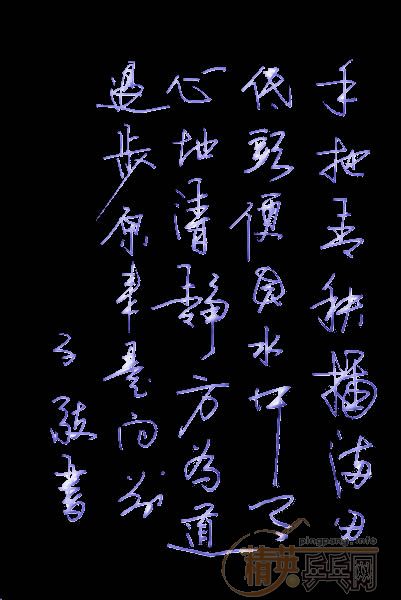 手把青秧插满田
低頭便見水中天
心地清静方為道
退步原来是向前
書
pingpang.info
精英乒乓网